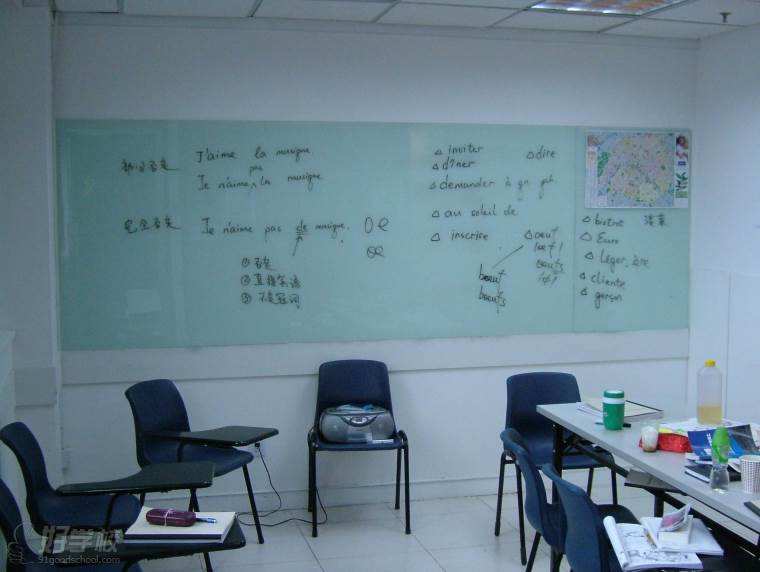 J'aime la musique
pas
Je n'aime la musique
Je n'aime pas de musique.
① 否定
② 直接宾语
③ 不定冠词
Œ
œ
△ inviter
△ dîner
△ demander à qn
△ au soleil de
△ inscrire
△ dire
△ oeuf
oeufs
boeuf
boeufs
△ bistrot
△ Euro
△ léger, ère
△ cliente
△ garçon
好学校
91goodschool.com